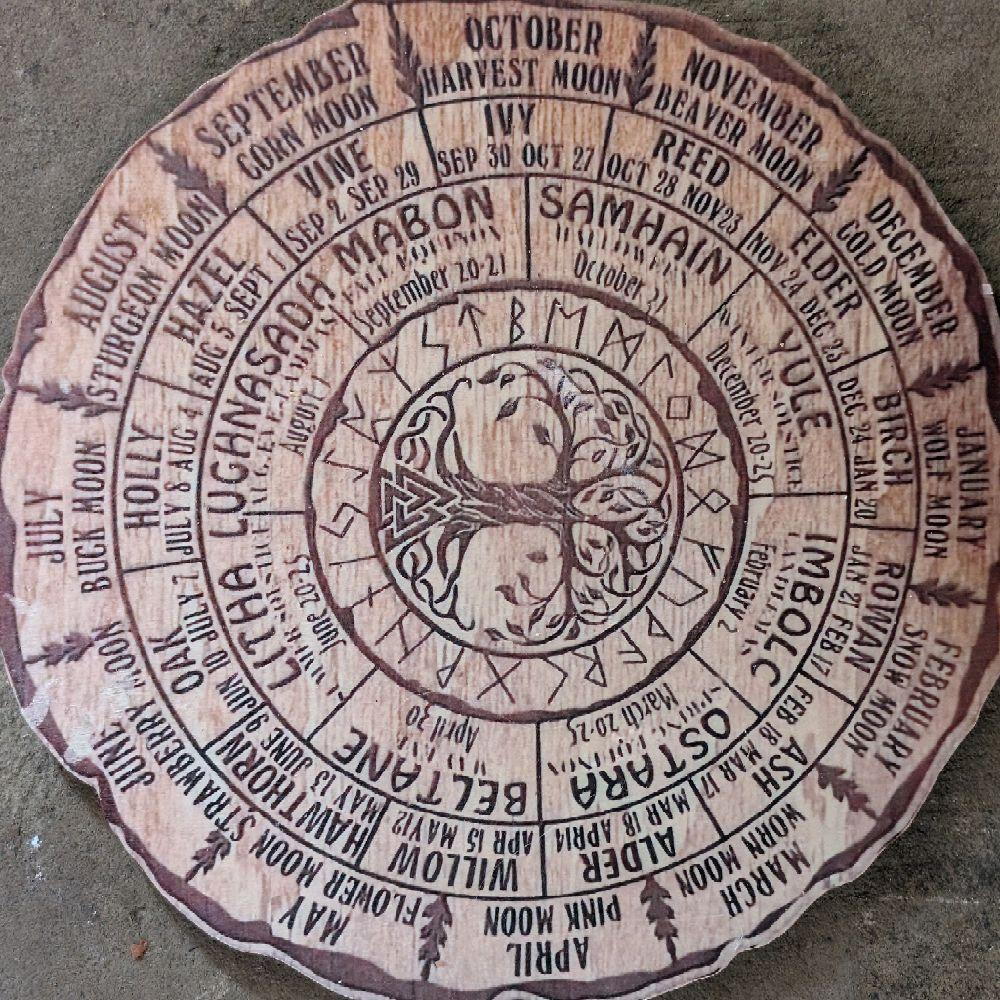 JANUARY
WOLF MOON
FEBRUARY
SNOW MOON
MARCH
WORN MOON
APRIL
PINK MOON
MAY
FLOWER MOON
JUNE
STRAWBERRY MOON
JULY
BUCK MOON
AUGUST
STURGEON MOON
SEPTEMBER
CORN MOON
OCTOBER
HARVEST MOON
NOVEMBER
BEAVER MOON
DECEMBER
COLD MOON
BIRCH
DEC 24 JAN 20
ROWAN
JAN 21 FEB 17
ASH
FEB 18 MAR 17
ALDER
MAR 18 APR14
WILLOW
APR 15 MAY12
HAWTHORN
MAY 13 JUNE 9
OAK
JUN 10 JULY 7
HOLLY
JULY 8 AUG 4
HAZEL
AUG 5 SEPT 1
VINE
SEP 2 SEP 29
IVY
SEP 30 OCT 27
REED
OCT 28 NOV23
ELDER
NOV 24 DEC 23
YULE
WINTER SOLSTICE
December 20-25
IMBOLC
CANDLEMAS
February 2
OSTARA
SPRING EQUINOX
March 20-25
BELTANE
April 30
LITHA
SUMMER SOLSTICE
June 20-25
LUGHNASADH
August 1
MABON
FALL EQUINOX
September 20-21
SAMHAIN
HALLOWEEN
October 31